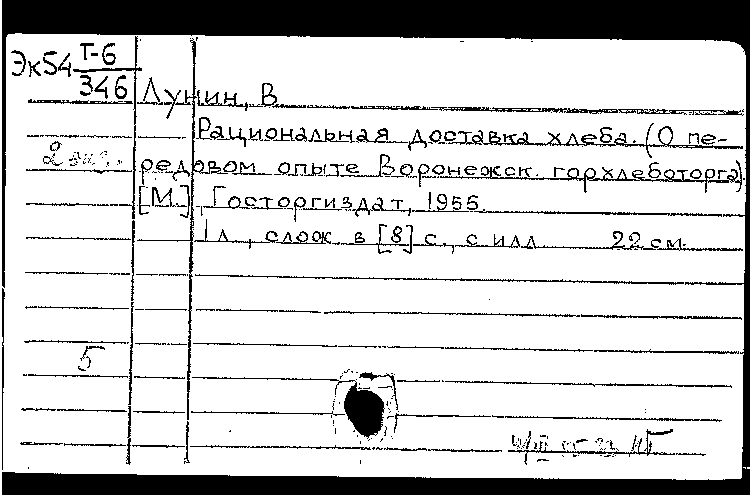 Эк54 Т-6
346
Лунин, В
Рациональная доставка хлеба. (О пе-
2 экз.
редовом опыте Воронежск. горхлеботорга)
[М.], Госторгиздат, 1955.
1 л., слож в [8] с., с илл 22 см.
5